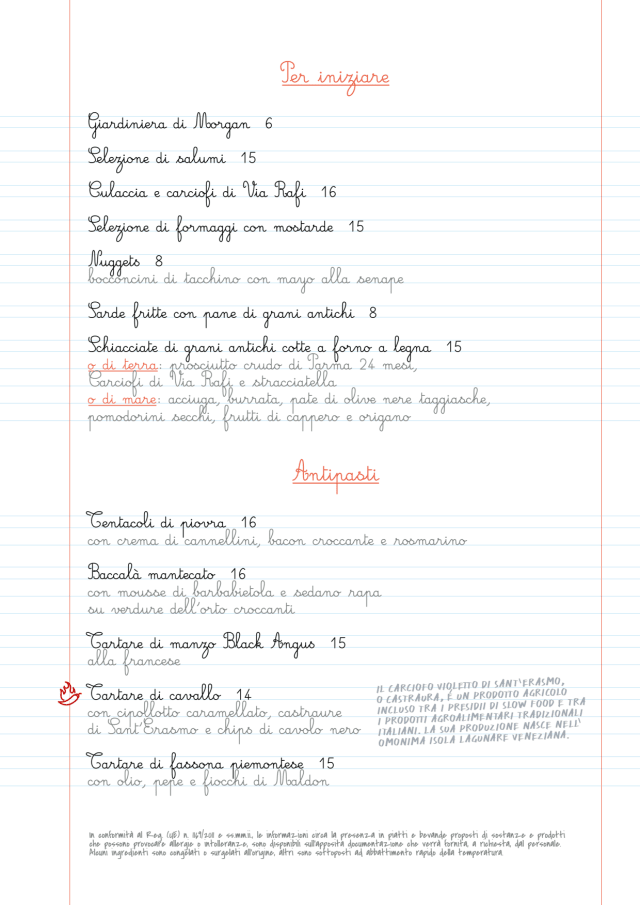 Per iniziare
Giardiniera di Morgan 6
Selezione di salumi 15
Culaccia e carciofi di Via Rafi 16
Selezione di formaggi con mostarde 15
Nuggets 8
bocconcini di tacchino con mayo alla senape
Sarde fritte con pane di grani antichi 8
Schiacciate di grani antichi cotte a forno a legna 15
o di terra: prosciutto crudo di Parma 24 mesi,
Carciofi di Via Rafi e stracciatella
o di mare: acciuga, burrata, pate di olive nere taggiasche,
pomodorini secchi, frutti di cappero e origano
Antipasti
Tentacoli di piovra 16
con crema di cannellini, bacon croccante e rosmarino
Baccalà mantecato 16
con mousse di barbabietola e sedano rapa
su verdure dell'orto croccanti
Tartare di manzo Black Angus 15
alla francese
Tartare di cavallo 14
con cipollotto caramellato, castraure
di Sant'Erasmo e chips di cavolo nero
IL CARCIOFO VIOLETTO DI SANT'ERASMO,
O CASTRAURA, È UN PRODOTTO AGRICOLO
INCLUSO TRA I PRESIDII DI SLOW FOOD E TRA
I PRODOTTI AGROALIMENTARI TRADIZIONALI
ITALIANI. LA SUA PRODUZIONE NASCE NELL'
OMONIMA ISOLA LAGUNARE VENEZIANA.
Tartare di fassona piemontese 15
con olio, pepe e fiocchi di Maldon
In conformità al Reg. (UE) n. 1169/2011 e ss.mm.ii., le informazioni circa la presenza in piatti e bevande proposti di sostanze e prodotti
che possono provocare allergie o intolleranze, sono disponibili sull'apposita documentazione che verrà fornita, a richiesta, dal personale.
Alcuni ingredienti sono congelati o surgelati all'origine, altri sono sottoposti ad abbattimento rapido della temperatura.